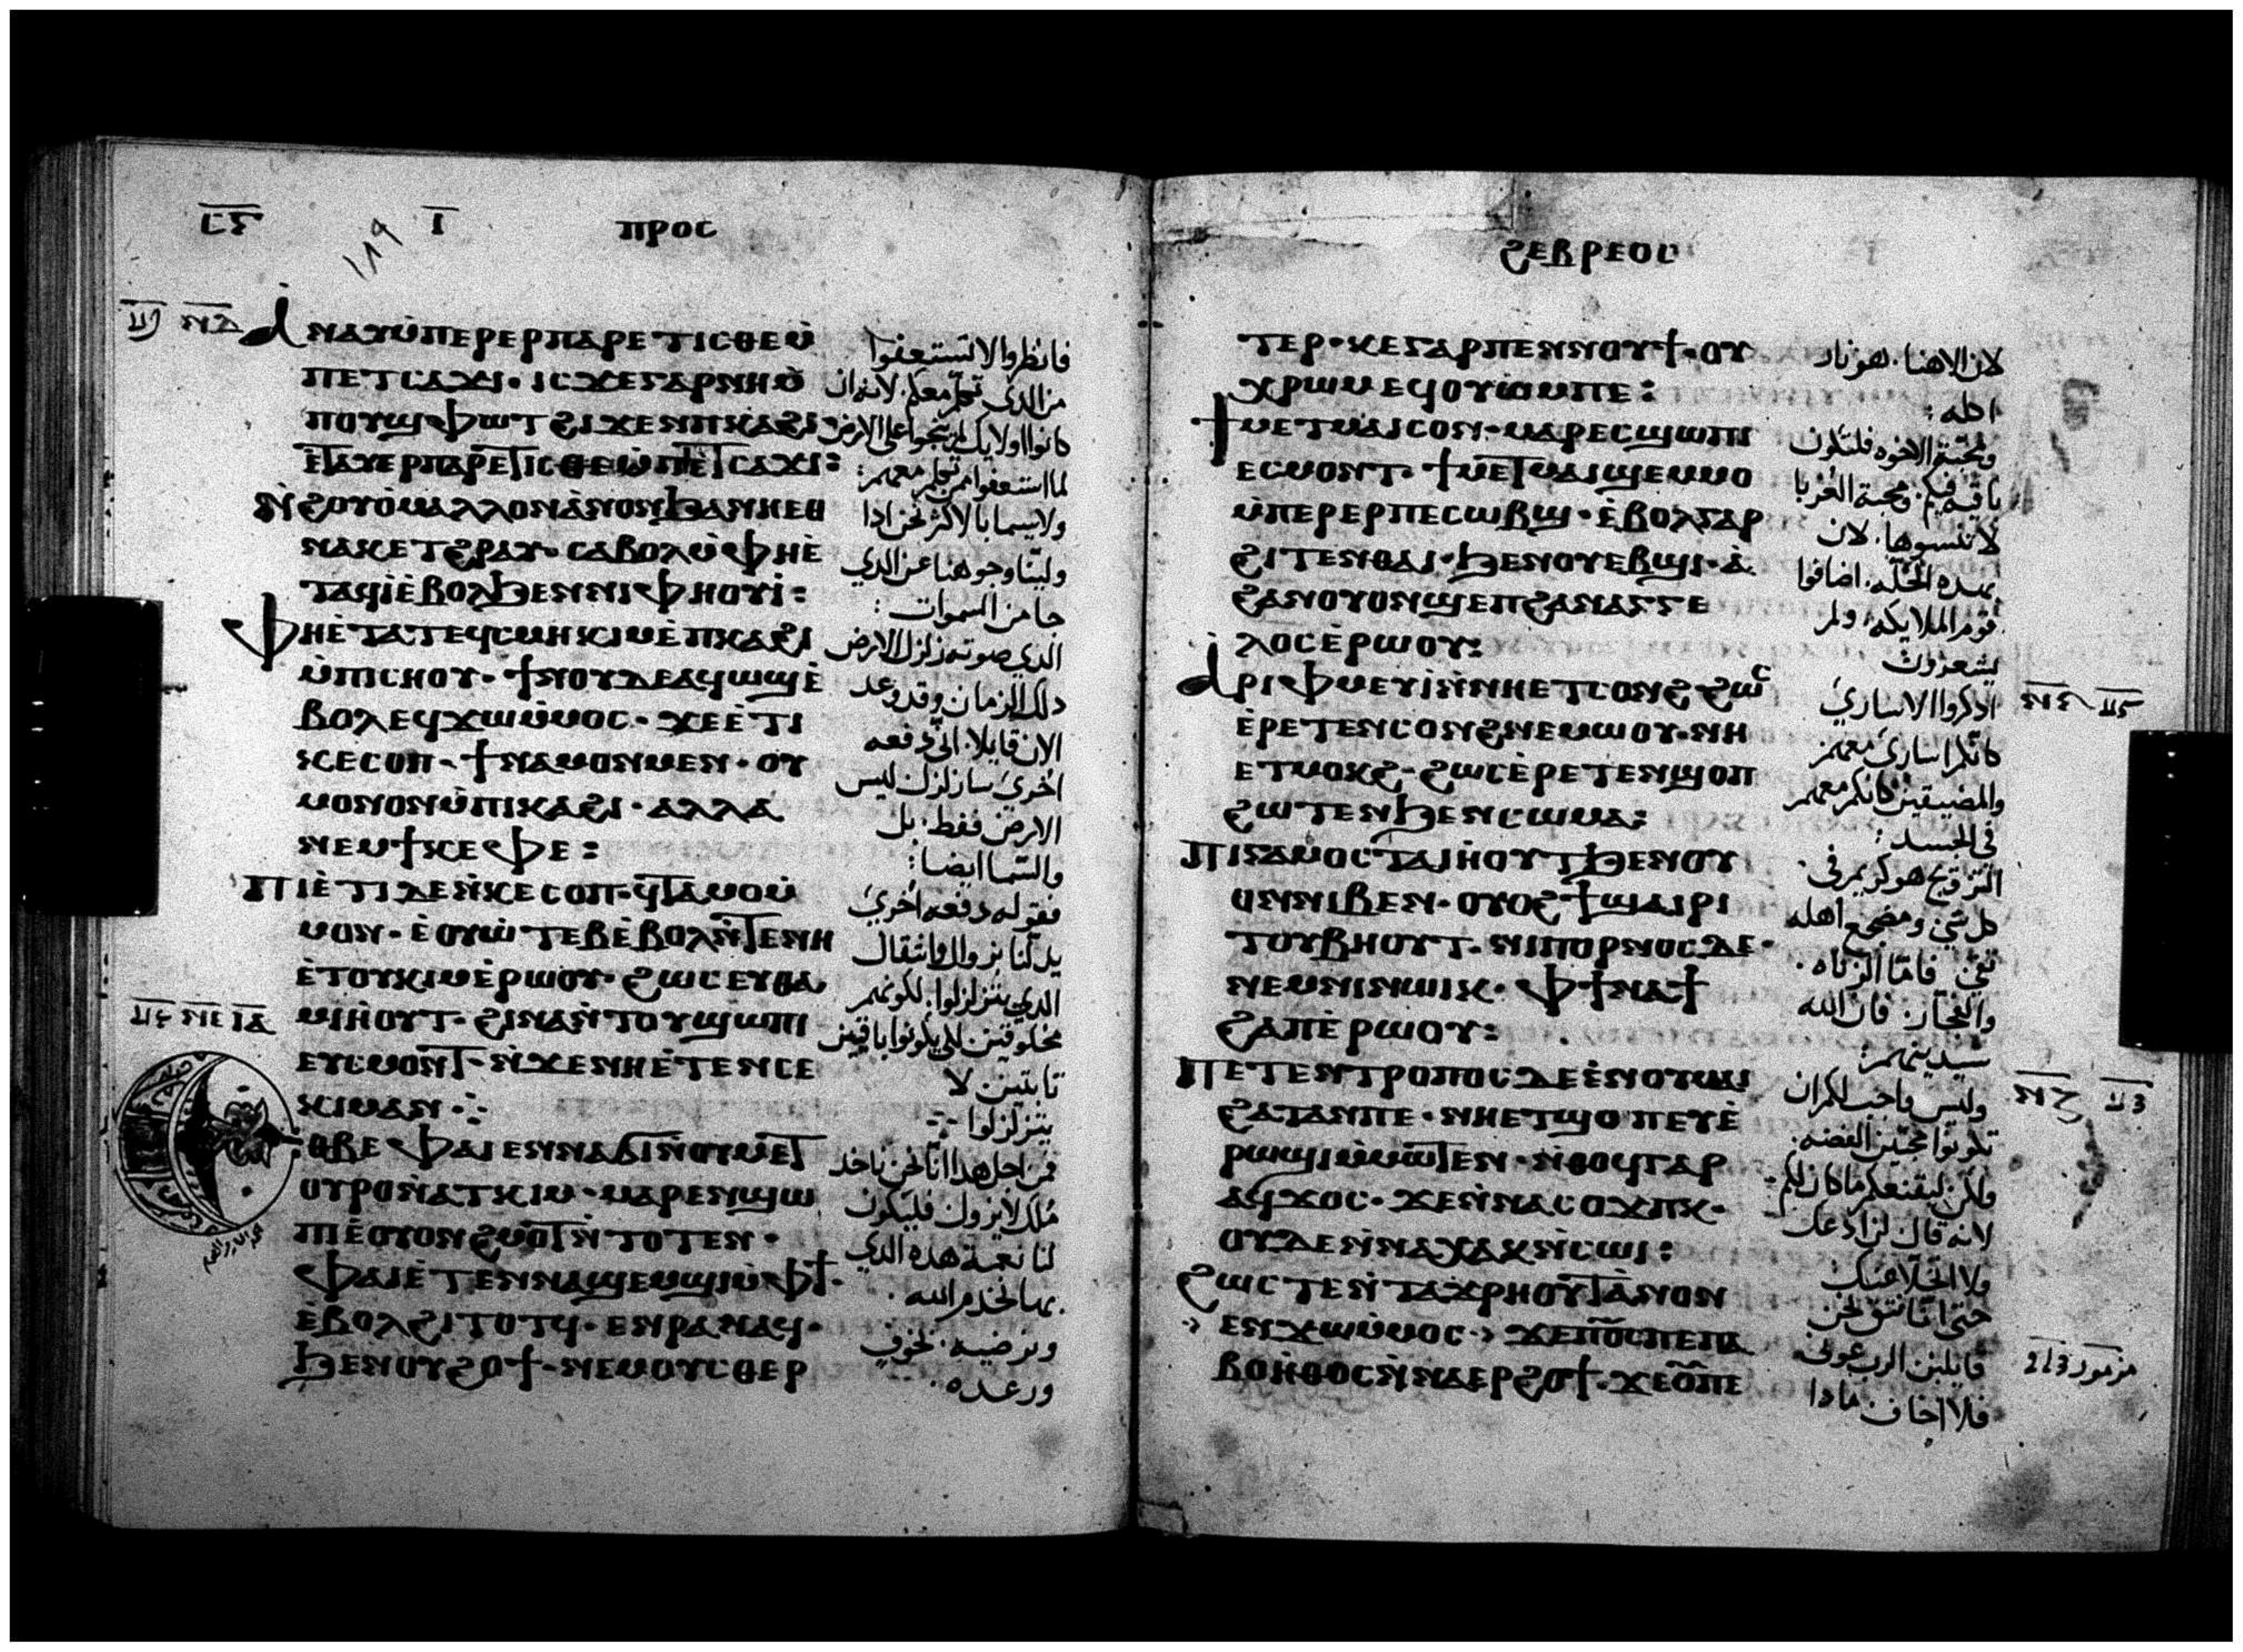 ⲡⲣⲟⲥ
ⲁⲛⲁⲩⲙ̇ⲡⲉⲣⲉⲣⲡⲁⲣⲉⲧⲓⲥⲑⲉⲙ̇
ⲡⲉⲧⲥⲁϫⲓ· ⲓⲥϫⲉⲅⲁⲣⲛⲏⲙ̇
ⲡⲟⲩϣⲫⲱⲧϩⲓϫⲉⲛⲡⲕⲁϩⲓ
ⲉ̇ⲧⲁⲩⲉⲣⲡⲁⲣⲉⲧⲓⲥⲑⲉⲙ̇ⲡⲉⲧⲥⲁϫⲓ:
ⲛ̇ϩⲟⲩⲟ̇ⲙⲁⲗⲗⲟⲛⲁ̇ⲛⲟⲛϧⲁⲛⲏⲉⲑ
ⲛⲁⲕⲉⲧϩⲣⲁⲩ· ⲥⲁⲃⲟⲗⲙ̇ⲫⲏⲉ̇
ⲧⲁϥⲓ̇ⲉ̇ⲃⲟⲗϧⲉⲛⲛⲓⲫⲏⲟⲩⲓ̇:
ⲫⲏⲉ̇ⲧⲁⲧⲉϥⲥⲙⲏⲕⲓⲙⲉ̇ⲡⲕⲁϩⲓ
ⲙ̇ⲡⲓⲥⲏⲟⲩ· ϯⲛⲟⲩⲇⲉⲁϥⲱϣⲉ̇
ⲃⲟⲗⲉϥϫⲱⲙ̇ⲙⲟⲥ· ϫⲉⲉ̇ⲧⲓ
ⲕⲉⲥⲟⲡ· ϯⲛⲁⲙⲟⲛⲙⲉⲛ· ⲟⲩ
ⲙⲟⲛⲟⲛⲙ̇ⲡⲓⲕⲁϩⲓ· ⲁⲗⲗⲁ
ⲛⲉⲙϯⲕⲉⲫⲉ:
ⲡⲓⲉ̇ⲧⲓⲇⲉⲛ̇ⲕⲉⲥⲟⲡ· ϥⲧⲁⲙⲟⲙ̇
ⲙⲟⲛ· ⲉ̇ⲟⲩⲱ̇ⲧⲉⲃⲉ̇ⲃⲟⲗⲛ̇ⲧⲉⲛⲏ
ⲉ̇ⲧⲟⲩⲕⲓⲙⲉ̇ⲣⲱⲟⲩ· ϩⲱⲥⲉⲩⲑⲁ
ⲙⲓⲏ̇ⲟⲩⲧ· ϩⲓⲛⲁⲛ̇ⲧⲟⲩϣⲱⲡⲓ
ⲉⲩⲥⲙⲟⲛⲧ· ⲛ̇ϫⲉⲛⲏⲉ̇ⲧⲉⲛⲥⲉ
ⲕⲓⲙⲁⲛ
ⲉⲑⲃⲉⲫⲁⲓⲉⲛⲛⲁϭⲓⲛ̇ⲟⲩⲙⲉⲧ
ⲟⲩⲣⲟⲛ̇ⲁⲧⲕⲓⲙ· ⲙⲁⲣⲉⲛϣⲱ
ⲡⲓⲉ̇ⲟⲩⲟⲛϩⲙⲟⲧⲛ̇ⲧⲟⲧⲉⲛ·
ⲫⲁⲓⲉ̇ⲧⲉⲛⲛⲁϣⲉⲙϣⲓⲙ̇ⲫϯ·
ⲉ̇ⲃⲟⲗϩⲓⲧⲟⲧϥ· ⲉⲛⲣⲁⲛⲁϥ·
ϧⲉⲛⲟⲩϩⲟϯ· ⲛⲉⲙⲟⲩⲥⲑⲉⲣ
فانظروا لا تستعفوا
من الذي تكلم معكم لانه ان
كانوا اولايك لم ينجوا على الارض
لما استعفوا ممن تكلم معهم:
ولاسيما بالاكثر نحن اذا
ولينا وجوهنا عن الذي
جا من السموات:
الذي صوته زلزل الارض
ذلك الزمان وقد وعد
الان قايلا. اني دفعه
اخرى سازلزل ليس
الارض فقط. بل
والسما ايضا:
فقوله دفعه اخرى
يدلنا بزوال وانتقال
الذي يتزلزلوا. لكونهم
مخلوقين لكي يكونوا باقيين
ثابتين لا
يتزلزلوا
فمن اجل هذا اننا نحن ناخذ
ملك لا يزول فليكون
لنا نعمة هذه الذي
بها نخدم الله.
ونرضيه. بخوف
ورعده.
ϩⲉⲃⲣⲉⲟⲥ
ⲧⲉⲣ· ⲕⲉⲅⲁⲣⲡⲉⲛⲛⲟⲩϯ· ⲟⲩ
ⲭⲣⲱⲙⲉϥⲟⲩⲱ̇ⲙⲡⲉ:
ϯⲙⲉⲧⲙⲁⲓⲥⲟⲛ· ⲙⲁⲣⲉⲥϣⲱⲡⲓ
ⲉⲥⲙⲟⲛⲧ· ϯⲙⲉⲧⲙⲁⲓϣⲉⲙⲙⲟ
ⲙ̇ⲡⲉⲣⲉⲣⲡⲉⲥⲱⲃϣ· ⲉ̇ⲃⲟⲗⲅⲁⲣ
ϩⲓⲧⲉⲛⲑⲁⲓ· ϧⲉⲛⲟⲩⲉⲃϣⲓ· ⲁ̇
ϩⲁⲛⲟⲩⲟⲛϣⲉⲡϩⲁⲛⲁⲅⲅⲉ
ⲗⲟⲥⲉ̇ⲣⲱⲟⲩ:
ⲁⲣⲓⲫⲙⲉⲩⲓ̇ⲛ̇ⲛⲏⲉⲧⲥⲟⲛϩϩⲱⲥ
ⲉ̇ⲣⲉⲧⲉⲛⲥⲟⲛϩⲛⲉⲙⲱⲟⲩ· ⲛⲏ
ⲉⲧⲙⲟⲕϩ· ϩⲱⲥⲉ̇ⲣⲉⲧⲉⲛϣⲟⲡ
ϩⲱⲧⲉⲛϧⲉⲛⲥⲱⲙⲁ:
ⲡⲓⲅⲁⲙⲟⲥⲧⲁⲓⲏ̇ⲟⲩⲧϧⲉⲛⲟⲩ
ⲟⲛⲛⲓⲃⲉⲛ· ⲟⲩⲟϩϯϣⲁⲓⲣⲓ
ⲧⲟⲩⲃⲏⲟⲩⲧ· ⲛⲓⲡⲟⲣⲛⲟⲥⲇⲉ·
ⲛⲉⲙⲛⲓⲛⲱⲓⲕ· ⲫϯⲛⲁϯ
ϩⲁⲡⲉ̇ⲣⲱⲟⲩ:
ⲡⲉⲧⲉⲛⲧⲣⲟⲡⲟⲥⲇⲉⲉ̇ⲛⲟⲩⲙⲁⲓ
ϩⲁⲧⲁⲛⲡⲉ· ⲛⲏⲉⲧϣⲟⲡⲉⲩⲉ̇
ⲣⲱϣⲓⲙ̇ⲙⲱⲧⲉⲛ· ⲛ̇ⲑⲟϥⲅⲁⲣ
ⲁϥϫⲟⲥ· ϫⲉⲛ̇ⲛⲁⲥⲟϫⲡⲕ·
ⲟⲩⲇⲉⲛ̇ⲛⲁⲭⲁⲕⲛ̇ⲥⲱⲓ:
ϩⲱⲥⲧⲉⲛ̇ⲧⲁϫⲣⲏⲟⲩⲧⲁ̇ⲛⲟⲛ
ⲉⲛϫⲱⲙ̇ⲙⲟⲥ· ϫⲉⲡϭⲥⲡⲉⲡⲁ
ⲃⲟⲏ̇ⲑⲟⲥⲛ̇ⲛⲁⲉⲣϩⲟϯ· ϫⲉⲟⲩⲡⲉ
لان الاهنا. هو نار
اكله:
ومحبة الاخوه فلتكون
ثابته فيكم. ومحبة الغربا
لا تنسوها. لان
بهذه الخله. اضافوا
قوم الملايكه. ولم
يشعرون
اذكروا الاسارى
كانكم اسارى معهم
والمضيقين كانكم معهم
في الجسد:
التزويج هو كريم في.
كل شي ومضجع اهله
نقي. فاما الزناه.
والفجار. فان الله
سيدينهم:
وليس واجب لكم ان
تكونوا محبين الفضه.
ولكن ليقنعكم ما كان لكم.
لانه قال لن ادعك
ولا اتخلا عنك
حتى اننا نتق نحن
قايلين الرب عوني.
فلا اخاف. ماذا
مزمور